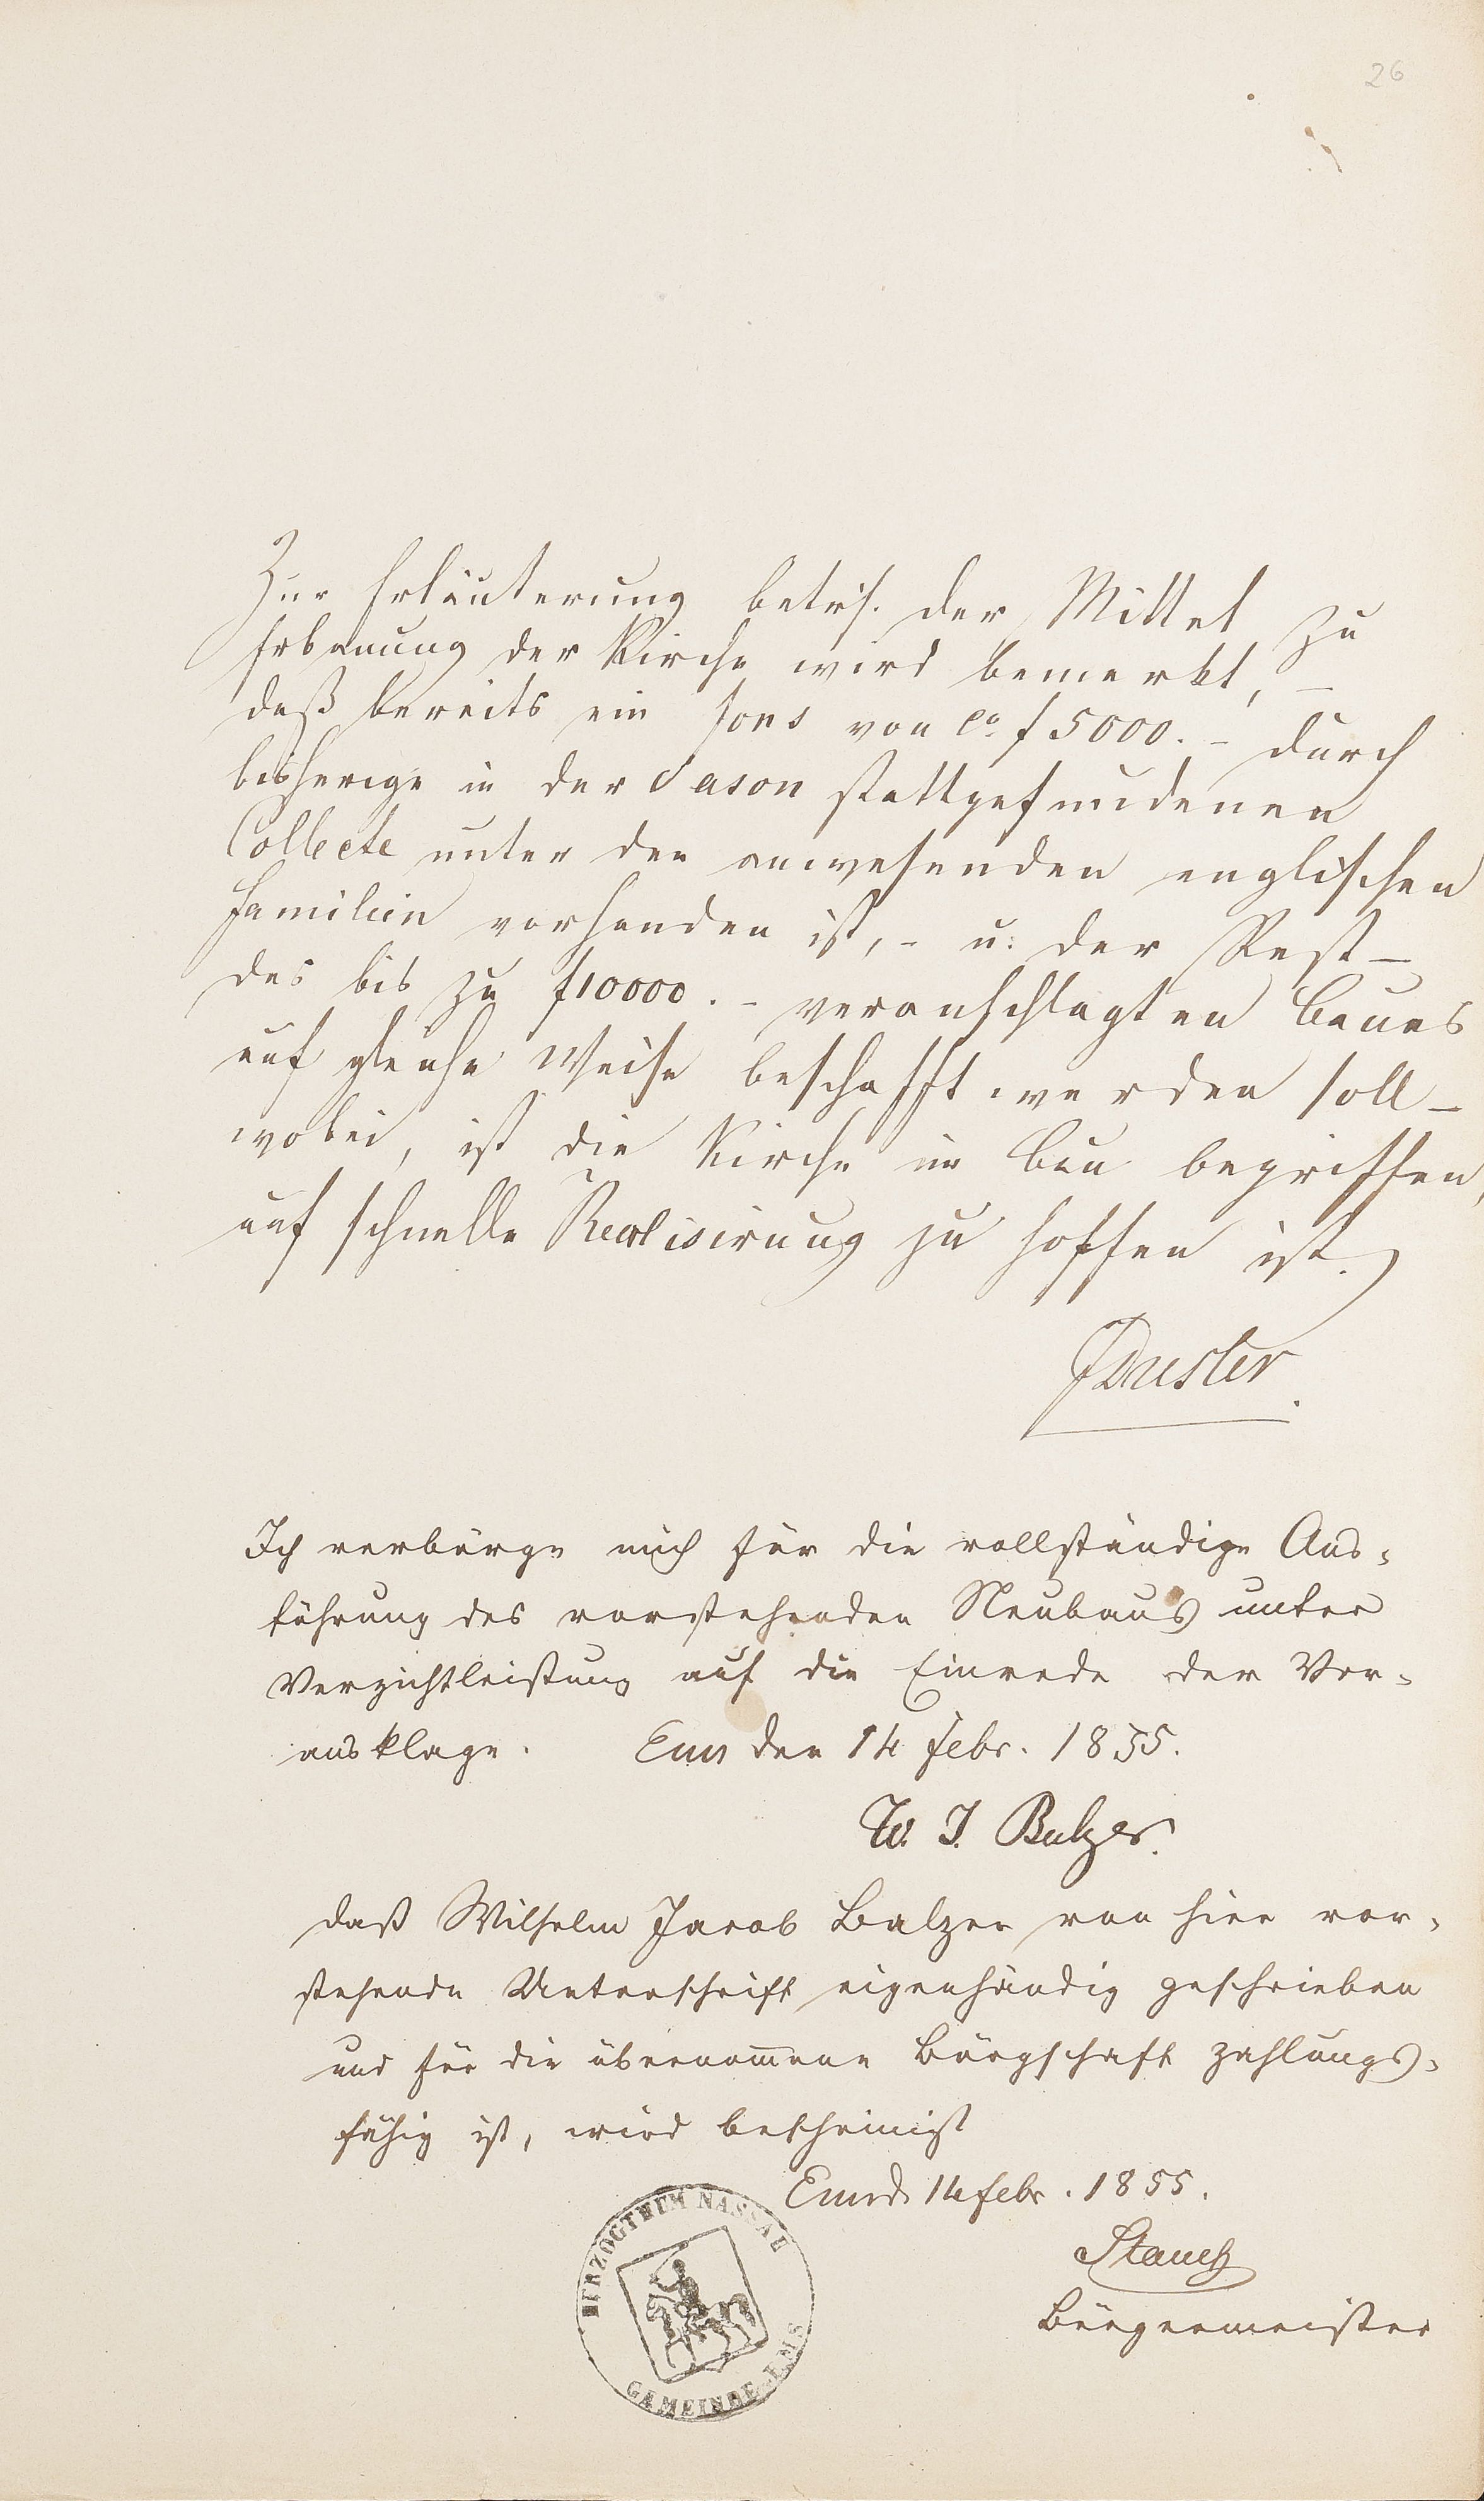 26
Zur Erläuterung betrf. der Mittel zu
Erbauung der Kirche wird bemerkt, –
daß bereits ein fons von ca f 5000. – durch
bisherige in der Sason stattgefundenen
Collecte unter den anwesenden englischen
Familien vorhanden ist, – u. der Rest –
des bis zu f 10000. – veranschlagten Baues
auf gleiche Weise beschafft werden soll –
wobei, ist die Kirche im Bau begriffen,
auf schnelle Realisirung zu hoffen ist.
Ich verbürge mich für die vollständige Aus-
führung des vorstehenden Neubaus unter
Verzichtleistung auf die Einrede der Vor-
ausklage. Ems den 14 Febr. 1855.
W. J. Balzer.
Daß Wilhelm Jacob Balzer von hier vor-
stehende Unterschrift eigenhändig geschrieben
und für die übernom̅ene Bürgschaft zahlungs-
fähig ist, wird bescheinigt
Ems d. 14 Febr. 1855.
Bürgermeister
HERZOGTHUM NASSAU
GAMEINDE EMS